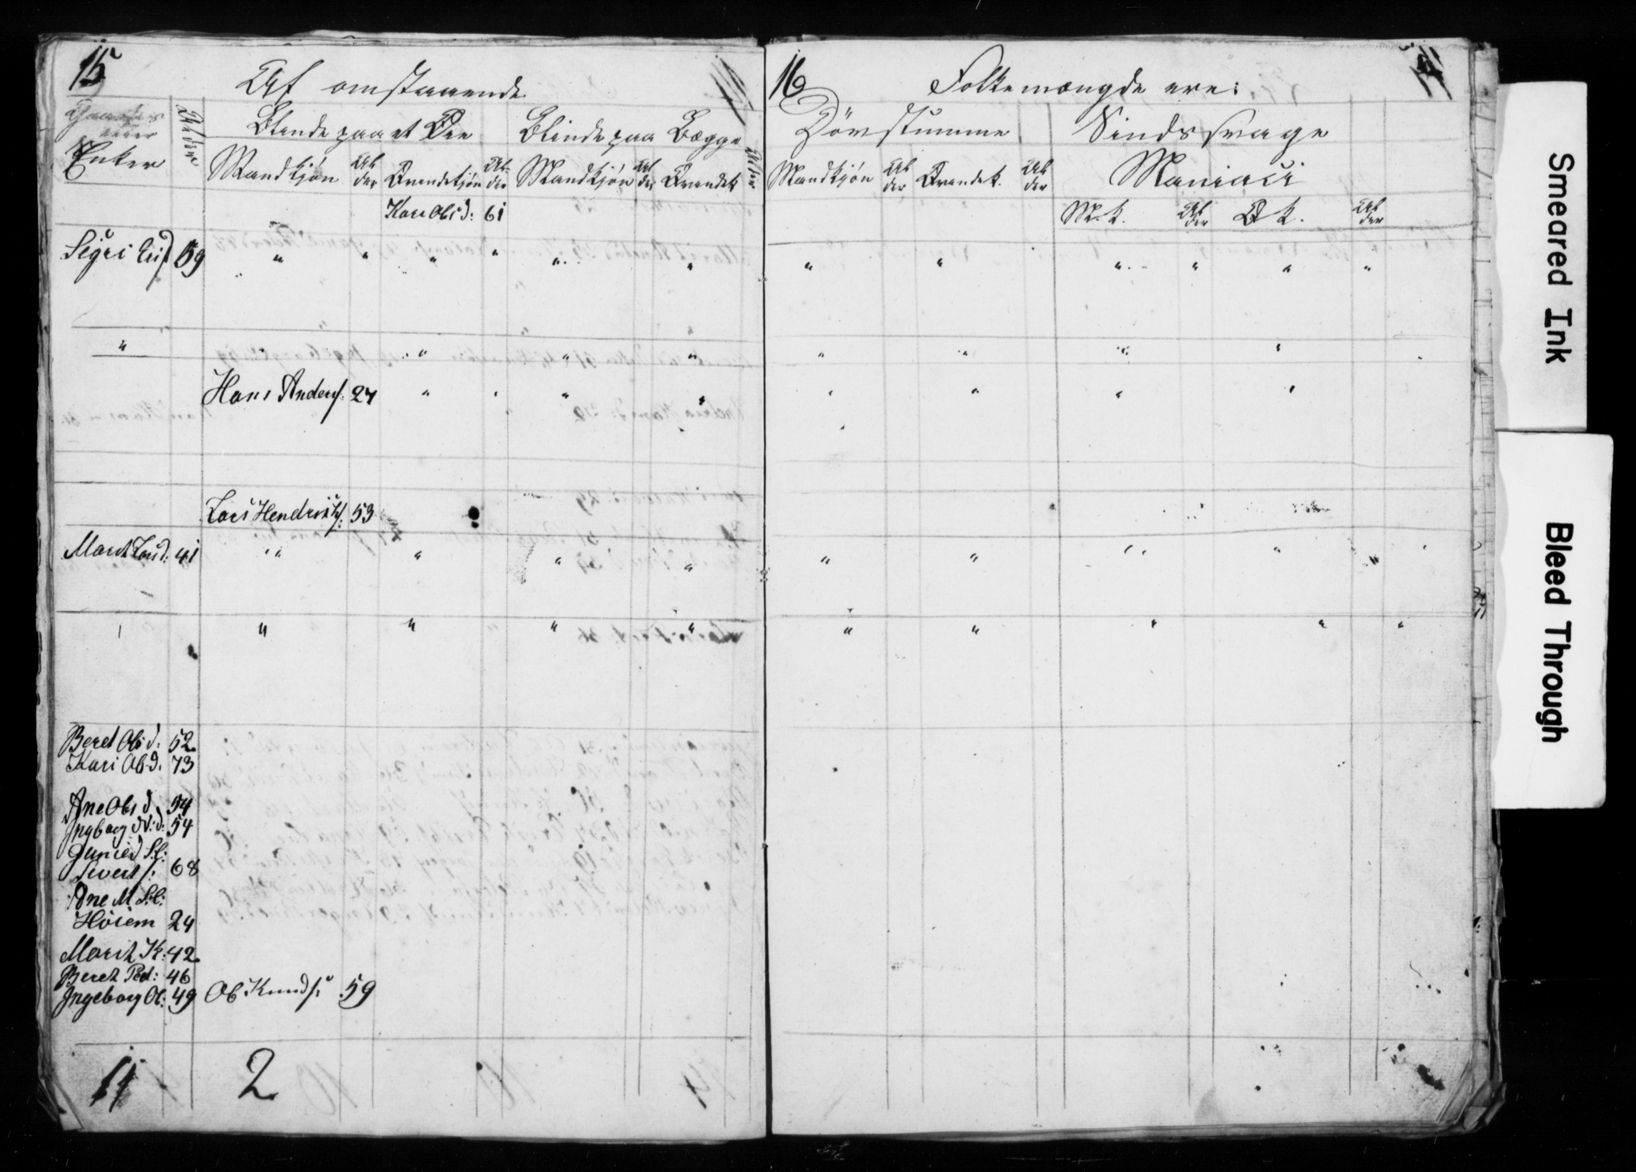 15
Af omstaaende
Enker
Alder
Blinde paa et Øie
Blinde paa Begge
Mandkjøn Al der Qvindekjøn Al der Mandkjøn Al der Qvindek Alder
Kari Olsd: 61
Sigri 59 " " " " " "
" " " "
Hans Anders: 27 " " "
Lars Hendriks: 53
Marit Lars d: 41 " " " "
" " " "
Beret Ols d: 52
Kari Ol d: 73
Ane Ols d 54
Ingborg d: 54
Sivert s: 68
Ane M
Hosem 24
Marit K: 42
Beret Ped: 46
Ingeborg Ol: 49 Ol Knuds: 59
11 2
16
Folkemængde ere:
Døvstumme Sindssvage
Mandkjøn Al der Qvindek. Al der Maniaci
M. K. Al der Q K. Al der
" " " " " "
" " " "
" " " "
" " " "
" " " " "
Smeared Ink
Bleed Through